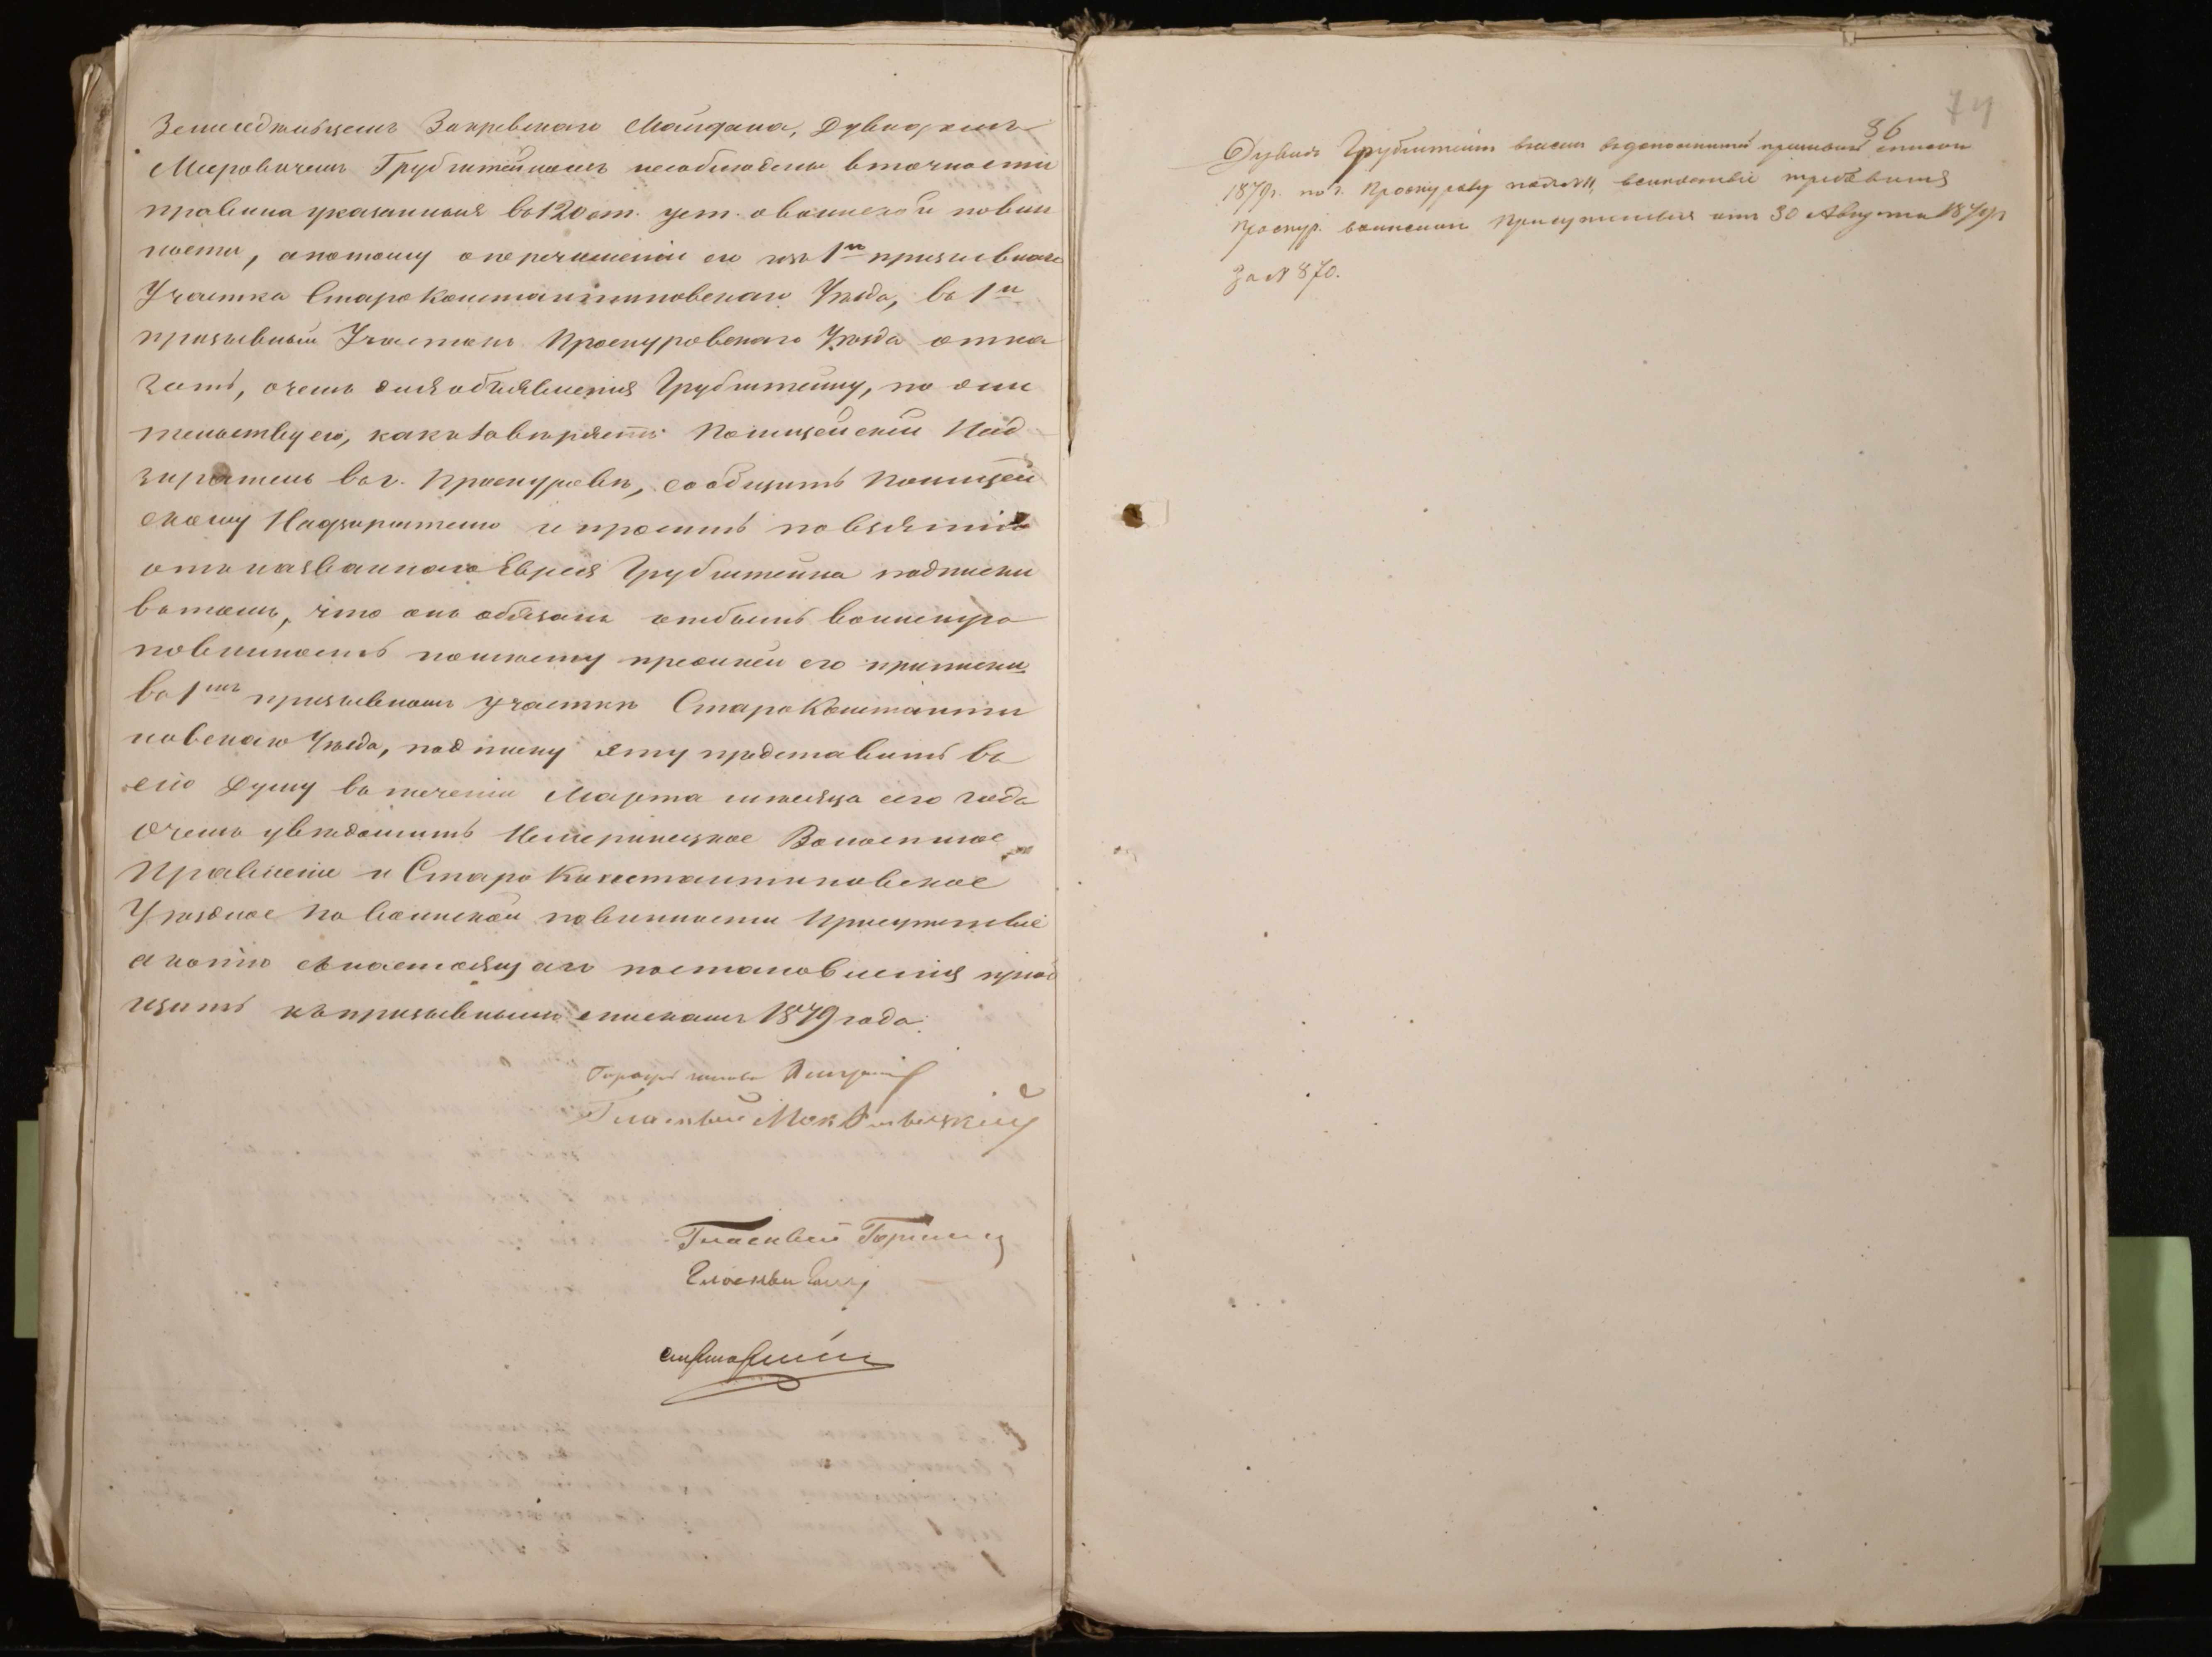 Земледѣльцемъ Закревскаго Майдана, Дувидомъ
Мееровичемъ Грубштейномъ несоблюдены вточности
правила указанныя въ 120 ст. уст. о воинской повин
ности, а потому о перечисленіи его изъ 1го призывнаго
Участка СтароКонстантиновскаго Уѣзда, въ 1й
призывный Участокъ Проскуровскаго Уѣзда отка
зать, о чемъ для объявленія Грубштейну, по жи
тельству его, какъ заверяетъ Полицейскій Над
зиратель въ г. Проскуровѣ, сообщить Полицей
скому Надзирателю и просить по взятіи
отъ названнаго Еврея Грубштейна подписки
въ томъ, что онъ обязанъ отбыть воинскую
повинность по мѣсту прежней его приписки
въ 1мъ призывномъ участкѣ СтароКонстанти
новскаго Уѣзда, подписку эту представить въ
сію Думу въ теченіи Марта мѣсяца сего года
О чемъ увѣдомить Немеринецкое Волостное
Правленіе и СтароКонстантиновское
Уѣздное по воинской повинности Присутствіе
а копію съ настоящаго постановленія пріоб
щить къ призывнымъ спискамъ 1879 года.
Гласный
Гласный
Гласный
74
86
Дувидъ Грубштейнъ внесенъ въ дополнительный призывной списокъ
1879г. по г. Проскурову вслѣдствіе требованія
Проскур. воинскаго Присутствія отъ 30 Августа 1879г
За № 870.